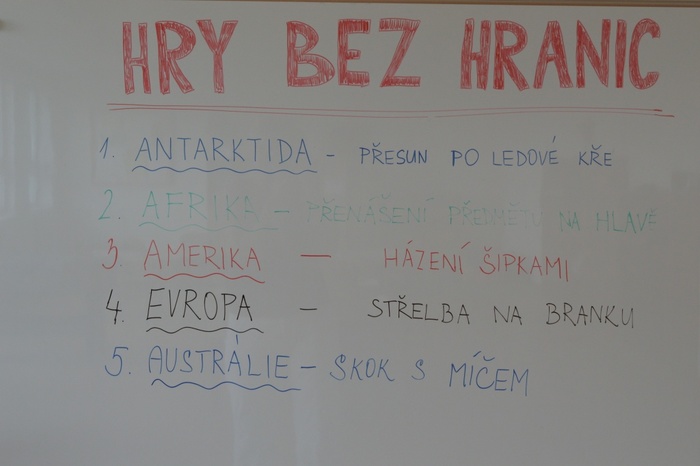 HRY BEZ HRANIC
1. ANTARKTIDA - PŘESUN PO LEDOVÉ KŘE
2. AFRIKA - PŘENÁŠENÍ PŘEDMĚTU NA HLAVĚ
3. AMERIKA - HÁZENÍ ŠIPKAMI
4. EVROPA - STŘELBA NA BRANKU
5. AUSTRÁLIE - SKOK S MÍČEM